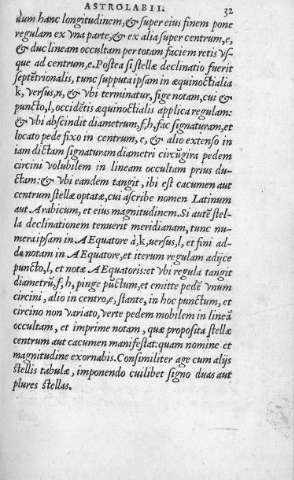 ASTROLABII. 32
dum hanc longitudinem, & super eius finem pone
regulam ex vna parte, & ex alia super centrum, e,
& duc lineam occultam per totam faciem retis vs-
que ad centrum, e. Postea si stellæ declinatio fuerit
septētrionalis, tunc supputa ipsam in æquinoctialia
k, versus, n, & vbi terminatur, fige notam, cui &
puncto, l, occidētis æquinoctialis applica regulam:
& vbi abscindit diametrum, f, h, fac signaturam, et
locato pede fixo in centrum, e, & alio extenso in
iam dictam signaturam diametri circūgira pedem
circini volubilem in lineam occultam prius du-
ctam: & vbi eandem tangit, ibi est cacumen aut
centrum stellæ optatæ, cui ascribe nomen Latinum
aut Arabicum, et eius magnitudinem. Si autē stel-
la declinationem tenuerit meridianam, tunc nu-
mera ipsam in AEquatore à, k, uersus, l, et fini ad-
de notam in AEquatore, et iterum regulam adijce
puncto, l, et notæ AEquatoris: et vbi regula tangit
diametrū, f, h, pinge pūctum, et emitte pedē vnum
circini, alio in centro, e, stante, in hoc punctum, et
circino non variato, verte pedem mobilem in lineā
occultam, et imprime notam, quæ proposita stellæ
centrum aut cacumen manifestat: quam nomine et
magnitudine exornabis. Consimiliter age cum alijs
stellis tabulæ, imponendo cuilibet signo duas aut
plures stellas.